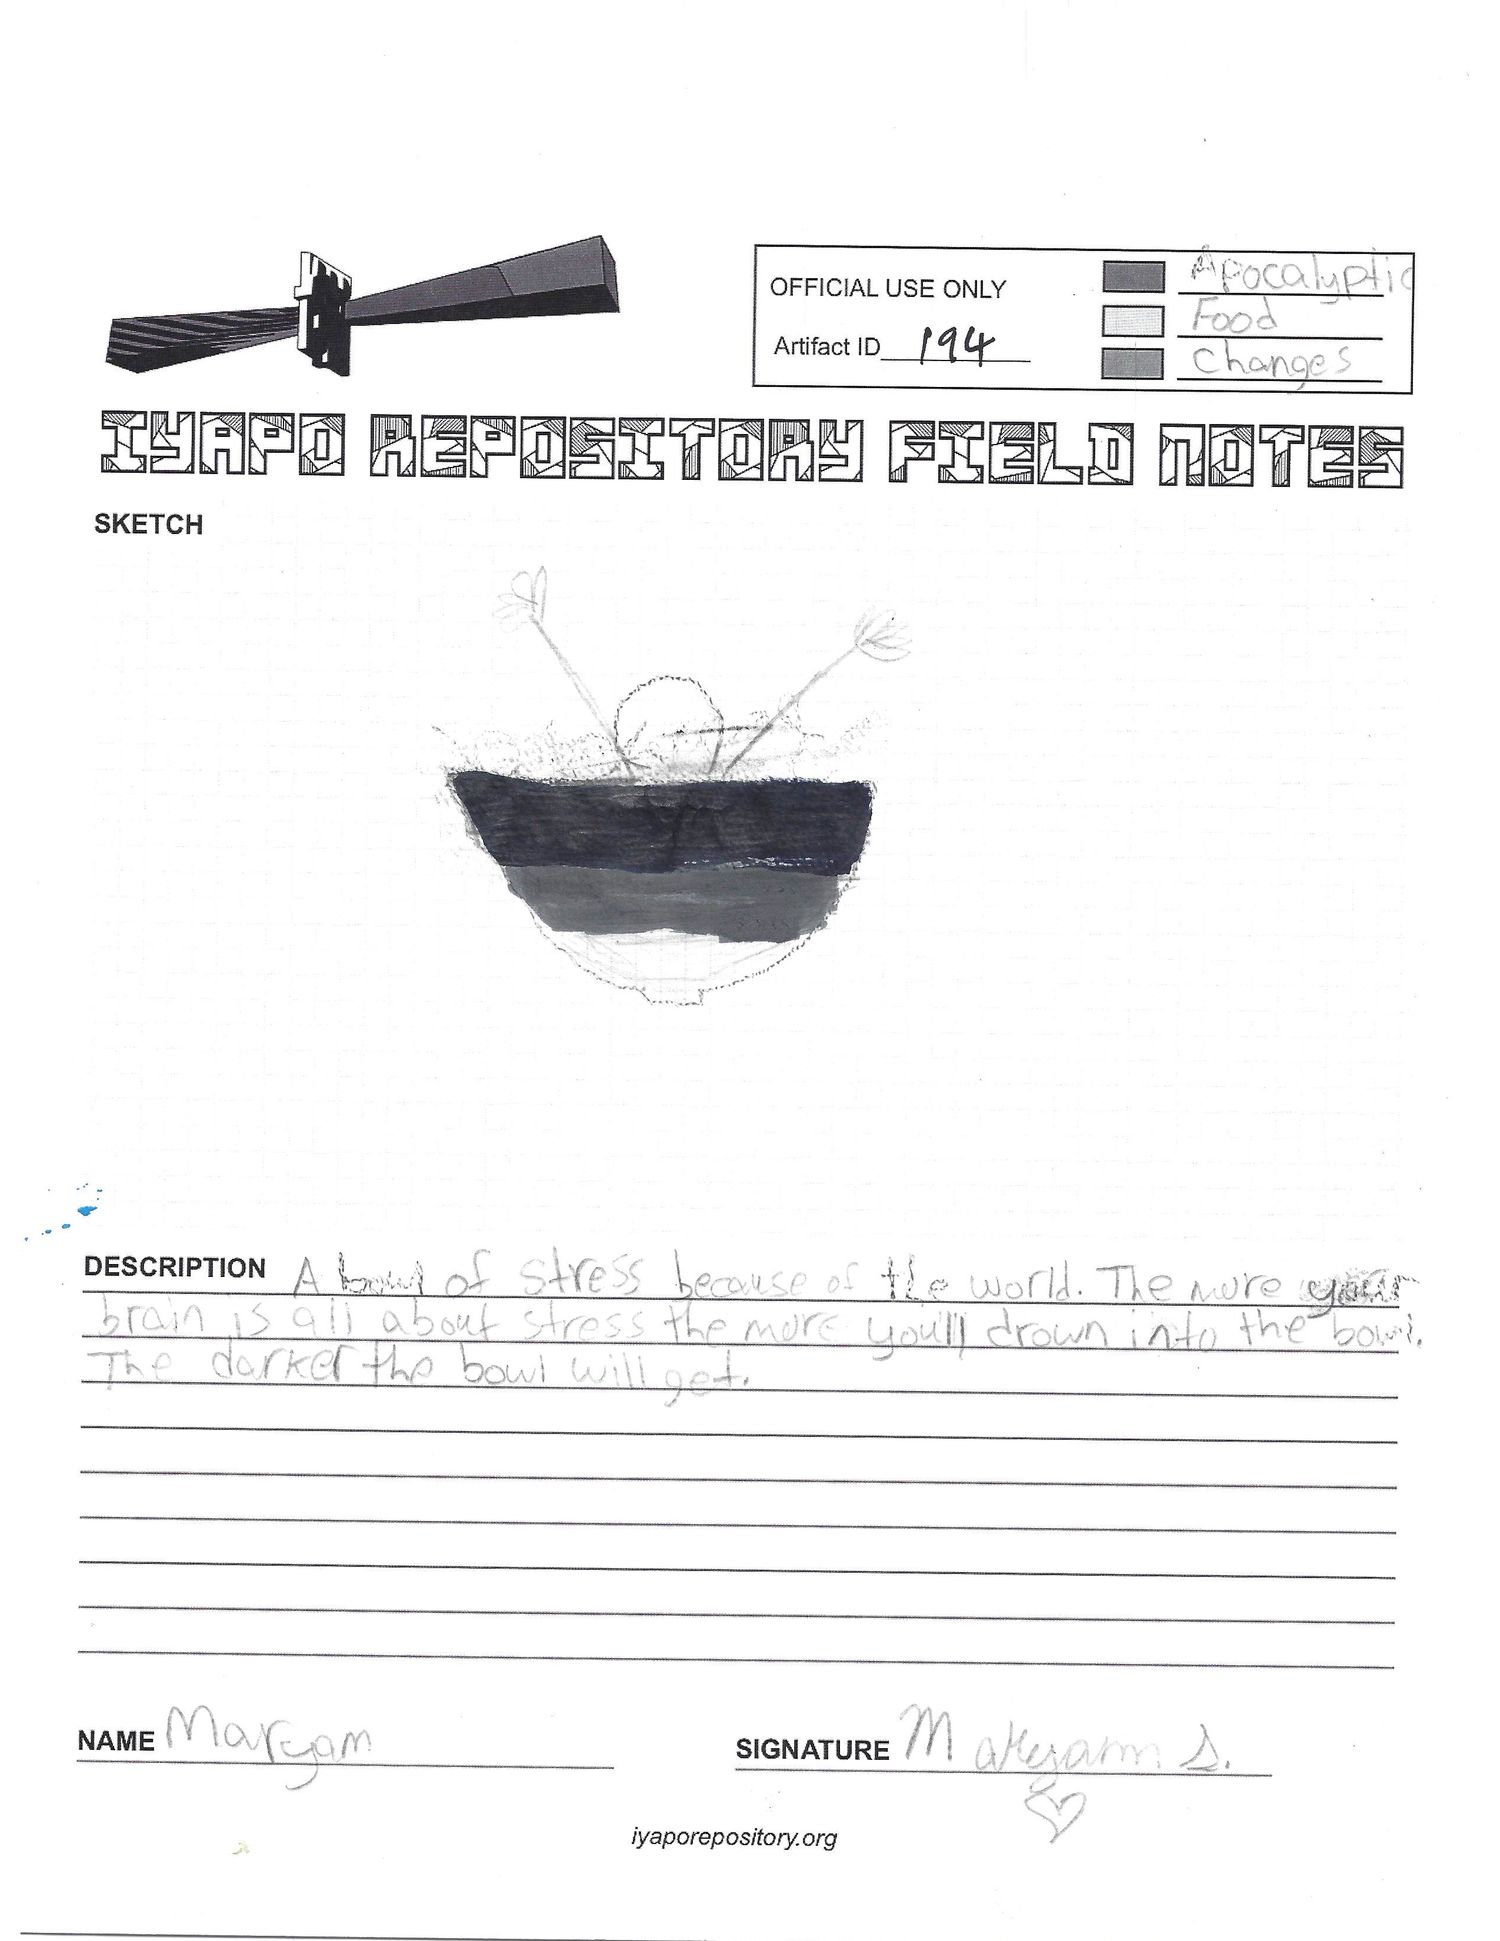 OFFICIAL USE ONLY
Apocalyptic
Food
Artifact ID 194
Changes
IYAPO REPOSITORY FIELD NOTES
SKETCH
DESCRIPTION A bowl of stress because of the world. The more your
brain is all about stress the more you'll drown into the bowl.
The darker the bowl will get.
NAME Maryam
SIGNATURE Maryam S.
iyaporepository.org